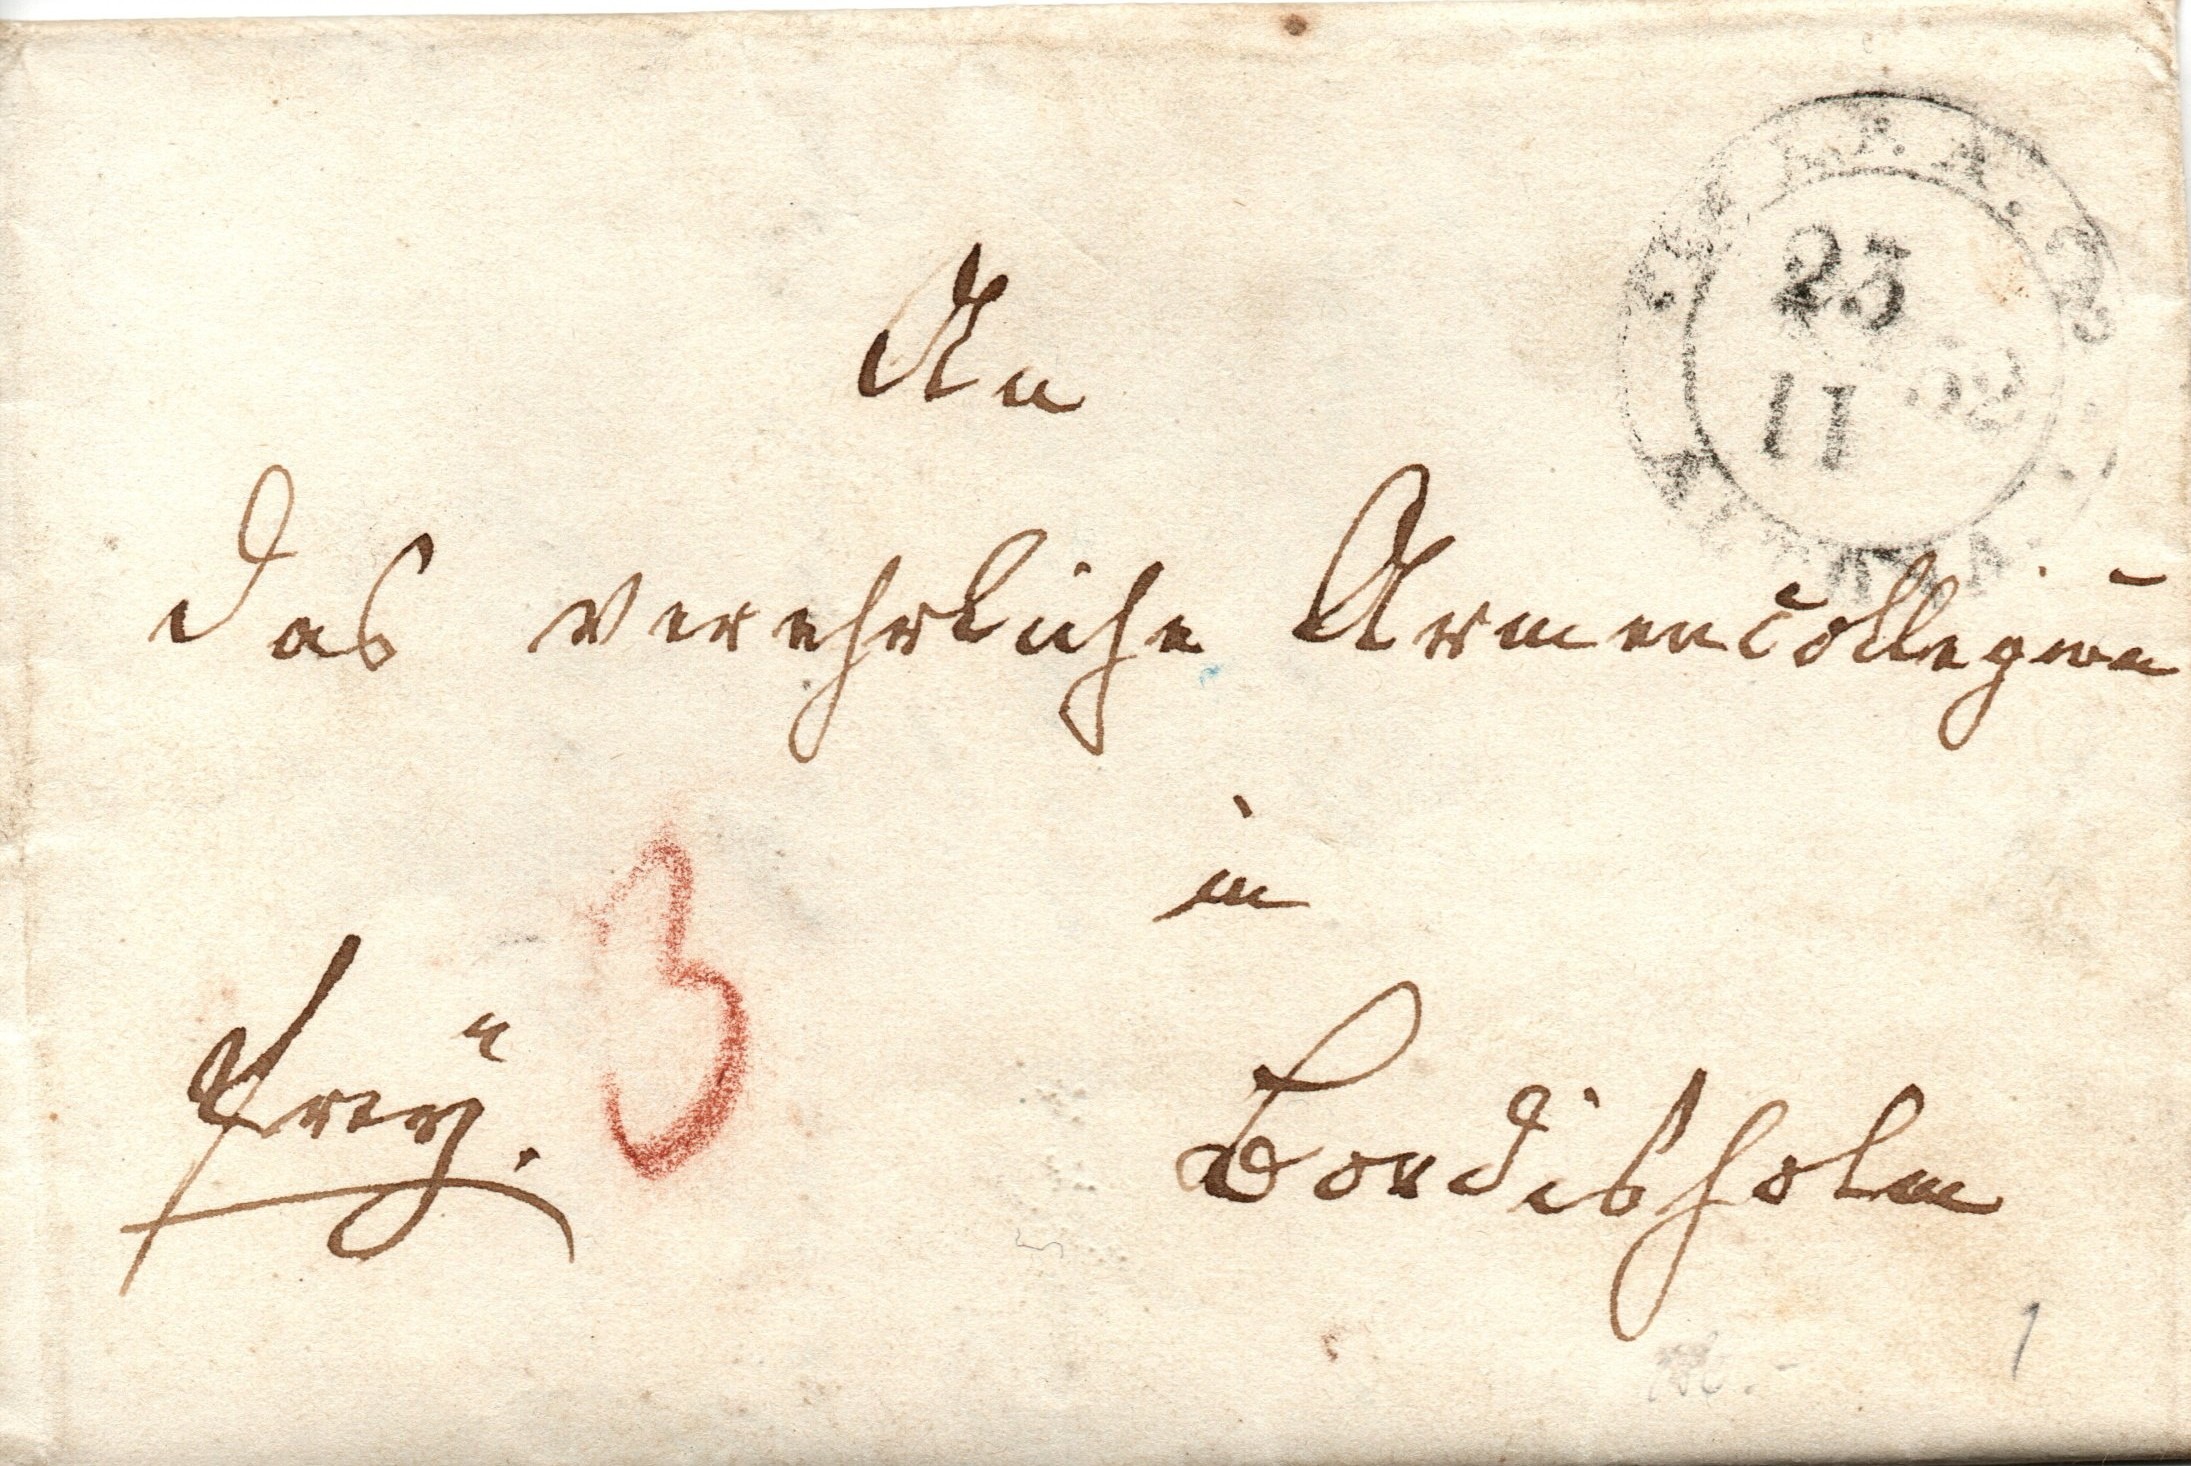 An
das verehrliche Armencollegium
in
Bordisholm
frey.
3
23
11 52
ALTONA
1